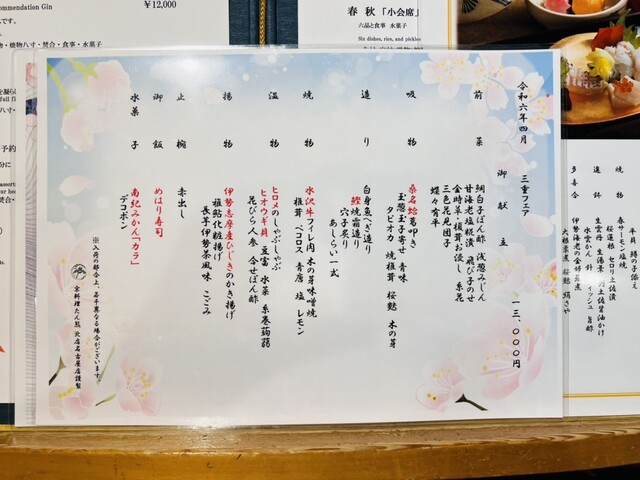 ommendation Gin
¥12,000
春秋「小会席」
六品と食事 水菓子
Six dishes, rice, and pickles
令和六年四月 三重フェア
御献立 一三、〇〇〇円
前菜
鯛白子ぽん酢 浅葱みじん
甘海老塩糀漬 飛び子のせ
金時草・榎茸お浸し 糸花
三色花見団子
蝶々有平
吸物
桑名蛤葛叩き
玉葱玉子寄せ 青味
タピオカ 焼椎茸 桜麩 木の芽
造り
白身魚へぎ造り
鰹焼霜造り
穴子炙り
あしらい一式
焼物
水沢牛フィレ肉 木の芽味噌焼
椎茸 ペコロス 青唐 塩 レモン
温物
ヒロメのしゃぶしゃぶ
ヒオウギ貝 豆富 水菜 糸巻蒟蒻
花びら人参 合せぽん酢
揚物
伊勢志摩産ひじきのかき揚げ
稚鮎化粧揚げ
長芋伊勢茶風味 こごみ
止椀
赤出し
御飯
めはり寿司
水菓子
南紀みかん「カラ」
デコポン
※入荷の都合上、若干異なる場合がございます。
京料理たん熊 北店名古屋店謹製
焼物
平貝 鱒の子添え
春サーモン塩焼
進鉢
桜蓮根 セロリ土佐漬
生雲丹 生湯葉 割土佐醤油かけ
多喜合
伊勢海老の金時煮
大根東煮 桜麩 絹さや